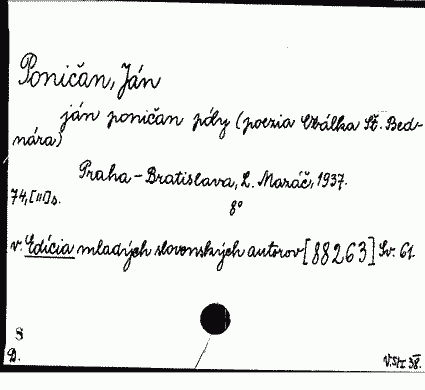 Poničan, Ján
ján poničan póly (poezia Obálka Št. Bed-
nára)
Praha - Bratislava, L. Mazáč, 1937.
74, [III] s.
8°
v. Edícia mladých slovenských autorov [88263] Sv. 61.
8
D.